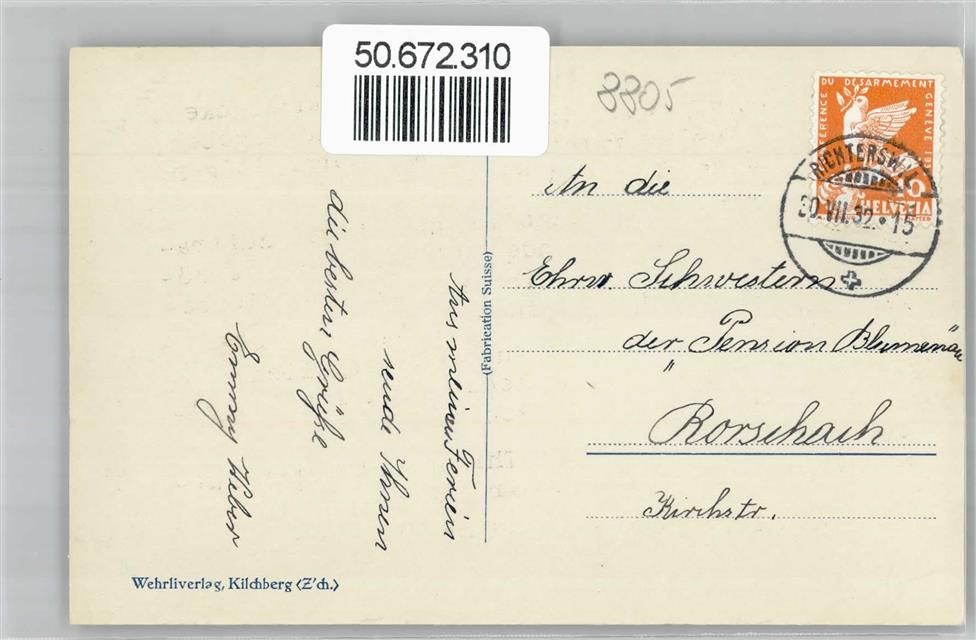 50.672.310
8805
CONFERENCE DU DESARMEMENT GENÈVE 193
10
HELVETIA
RICHTERSWIL
30.VII.32.-15
An die
Ehrw. Schwestern
der "Pension Blumenau
Rorschach
Kirchstr.
(Fabrication Suisse)
Aus meinen Ferien
sende Ihnen
die besten Grüße
Emmy
Wehrliverlag, Kilchberg (Z'ch.)